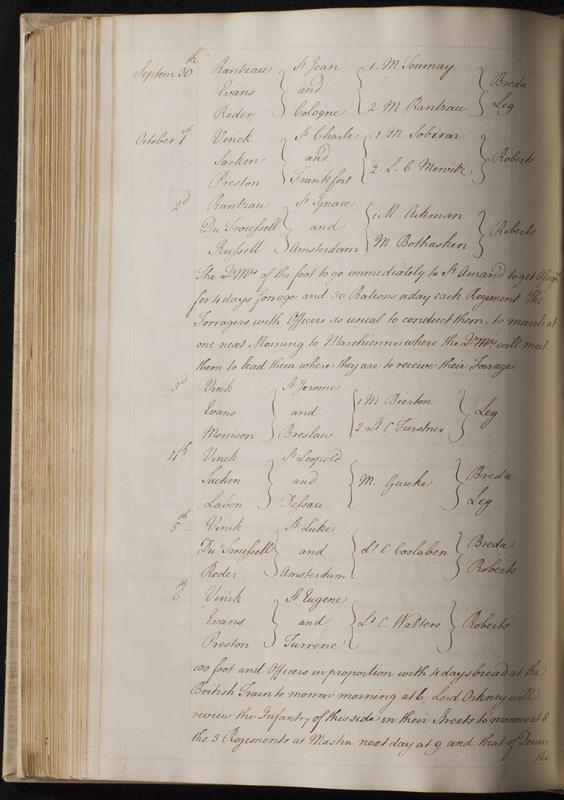 Septem 30th Rantzau St Jean 1. M Tournay
Evans and Breda
Reder Cologne 2. M. Rantzau Leg
October 1st Vinck St Charle 1 M Sobiron
Sacken and Roberts
Preston Frankfort 2. L. C. Merwitz
2d Rantzau St Ignace 1 M. Ackman
Du Troussell and Roberts
Russell Amsterdam M. Bothasken
The Qr Mrs of the foot to go immediately to St Amand to get
for 4 days forrage and 30 Rations a day each Regiment The
Forragers with Officers as usual to conduct them to march at
one next Morning to Marchienne where the Qr Mrs will meet
them to lead them where they are to receive their Forrage.
3d Vink St Jerome
Evans and 1 M Bierton Leg
Morrison Breslau 2 Lt C Furstner
4th Vinck St Leopold
Sacken and M. Guicke Breda
Labon Dessau Leg
5th Vinck St Luke
Du Troussell and Lt C Coslaben Breda
Reder Amsterdam Roberts
6th Vinck St Eugene
Evans and Lt C. Walters Roberts
Preston Turrene
100 foot and Officers in proportion with 4 days bread at the
British Train to morrow morning at 6, Lord Orkney will
review the Infantry of this side in their Streets to morrow at 8
the 3 Regiments at Mastin next day at 9 and that of Denin
the